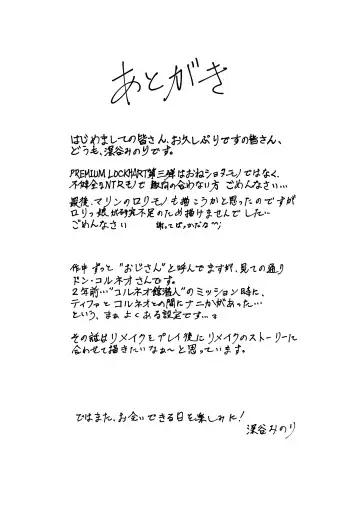 あとがき
はじめましての皆さん、お久しぶりですの皆さん、
どうも、深谷みのりです。
PREMIUM LOCKHART第三弾はおねショタモノではなく、
不健全なNTRモノで 趣向の合わない方 ごめんなさい…
最後、マリンのロリモノも描こうかと思ったのですが
ロリっ娘が研究不足のため描けませんでした…
ごめんなさい 謝ってばっかだな
作中ずっと "おじさん" と呼んでますが、見ての通り
ドン・コルネオさんです。
2年前…"コルネオ館潜入" のミッション時に、
ティファとコルネオとの間にナニかがあった…
という、まぁよくある設定です…。
その話はリメイクをプレイ後にリメイクのストーリーに
合わせて描きたいなぁ〜と思っています。
ではまた、お会いできる日を楽しみに!
深谷みのり